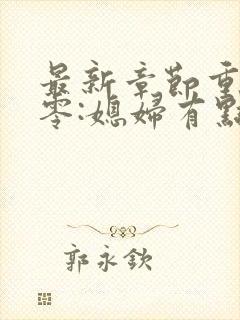 最新章節重
零:媳婦有點
郭永欽